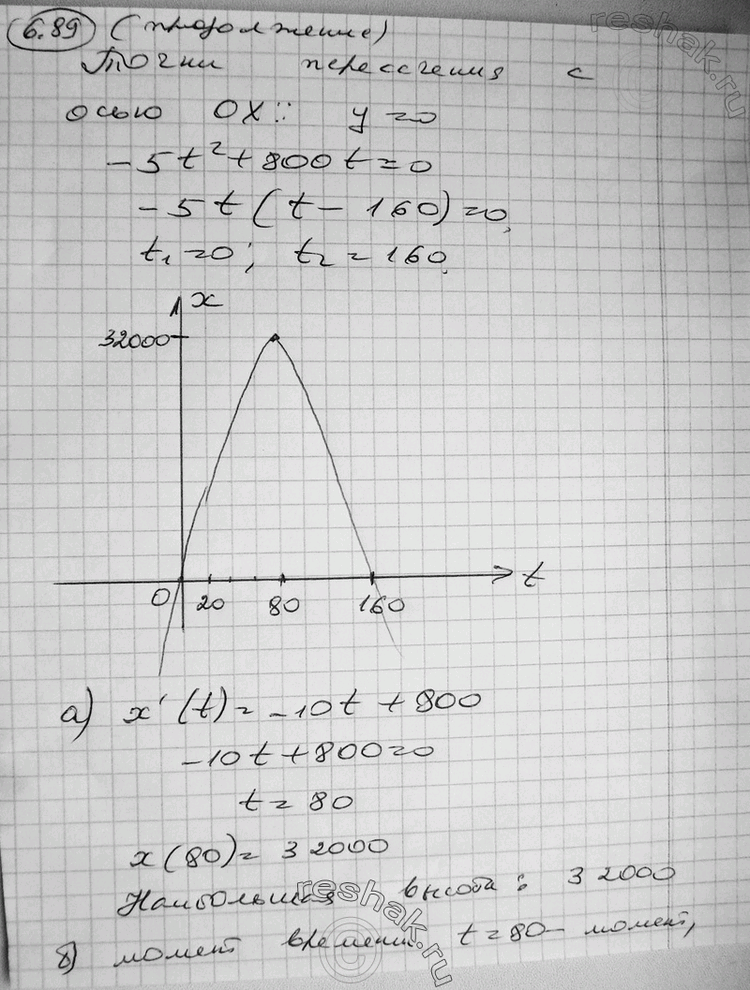 6.89 (продолжение)
Точки пересечения с
осью OX: y=0
-5t²+800t=0
-5t(t-160)=0,
t₁=0; t₂=160,
x
32000
0 20 80 160 t
а) x'(t)=-10t+800
-10t+800=0
t=80
x(80)=32000
Наибольшая высота: 32000
б) момент времени t=80- момент,
reshak.ru
reshak.ru